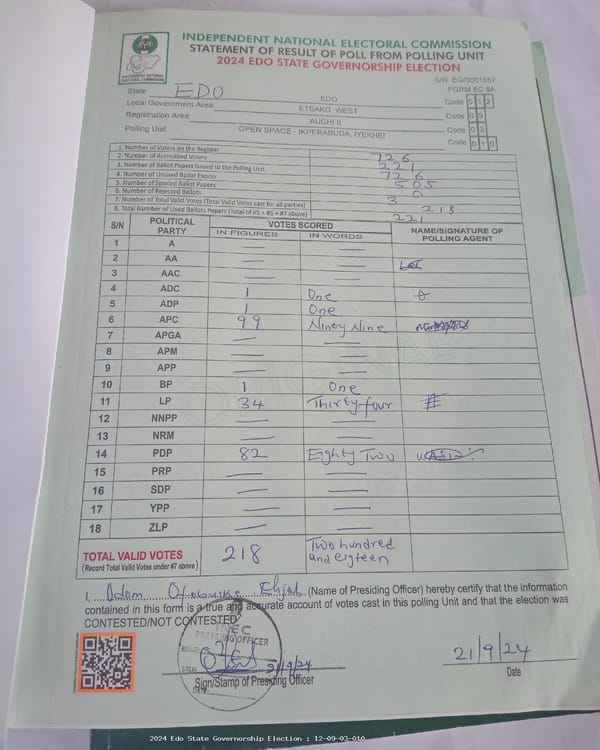 INDEPENDENT NATIONAL ELECTORAL COMMISSION
STATEMENT OF RESULT OF POLL FROM POLLING UNIT
2024 EDO STATE GOVERNORSHIP ELECTION
INDEPENDENT NATIONAL ELECTORAL COMMISSION
S/N: EG/0001657
FORM EC 8A
State EDO EDO Code 0 1 2
Local Government Area ETSAKO WEST Code 0 9
Registration Area AUCHI II Code 0 3
Polling Unit OPEN SPACE - IKPERABUDA, IYEKHEI Code 0 1 0
1. Number of Voters on the Register 726
2. Number of Accredited Voters 221
3. Number of Ballot Papers Issued to the Polling Unit 726
4. Number of Unused Ballot Papers 505
5. Number of Spoiled Ballot Papers 0
6. Number of Rejected Ballots 3
7. Number of Total Valid Votes (Total Valid Votes cast for all parties) 218
8. Total Number of Used Ballot Papers (Total of #5 + #6 + #7 above) 221
S/N POLITICAL PARTY VOTES SCORED NAME/SIGNATURE OF POLLING AGENT
IN FIGURES IN WORDS
1 A — —
2 AA — —
3 AAC — —
4 ADC 1 One
5 ADP 1 One
6 APC 99 Ninety Nine
7 APGA — —
8 APM — —
9 APP — —
10 BP 1 One
11 LP 34 Thirty-four
12 NNPP — —
13 NRM — —
14 PDP 82 Eighty Two
15 PRP — —
16 SDP — —
17 YPP — —
18 ZLP — —
TOTAL VALID VOTES 218 Two hundred and eigteen
(Record Total Valid Votes under #7 above)
I, ....(Name of Presiding Officer) hereby certify that the information
contained in this form is a true and accurate account of votes cast in this polling Unit and that the election was
CONTESTED/NOT CONTESTED.
INEC
PRESIDING OFFICER
21/9/24
Sign/Stamp of Presiding Officer
21/9/24
Date
2024 Edo State Governorship Election : 12-09-03-010